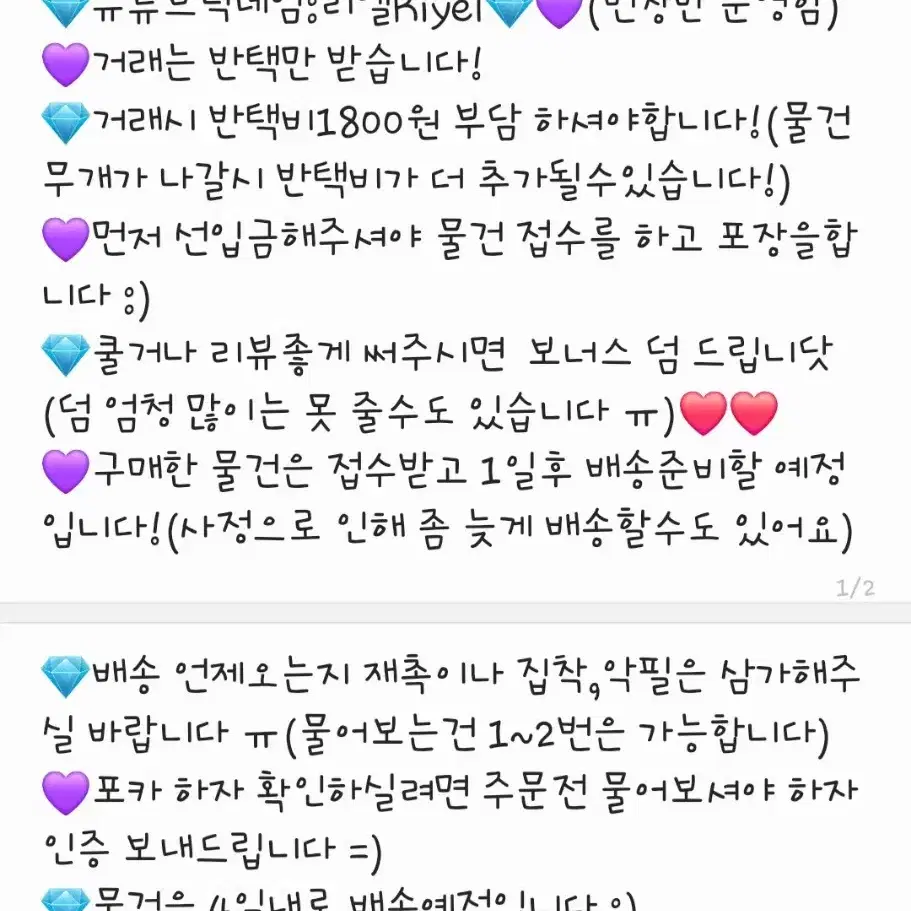 💎유튜브닉네임:리엘Riyel💎💜(번장만 운영함)
💜거래는 반택만 받습니다!
💎거래시 반택비1800원 부담 하셔야합니다!(물건
무개가 나갈시 반택비가 더 추가될수있습니다!)
💜먼저 선입금해주셔야 물건 접수를 하고 포장을합
니다 :)
💎쿨거나 리뷰좋게 써주시면 보너스 덤 드립니닷
(덤 엄청 많이는 못 줄수도 있습니다 ㅠ)❤️❤️
💜구매한 물건은 접수받고 1일후 배송준비할 예정
입니다!(사정으로 인해 좀 늦게 배송할수도 있어요)
1/2
💎배송 언제오는지 재촉이나 집착,악필은 삼가해주
실 바랍니다 ㅠ(물어보는건 1~2번은 가능합니다)
💜포카 하자 확인하실려면 주문전 물어보셔야 하자
인증 보내드립니다 =)
💎물건은 4일내로 배송예정입니다 :)